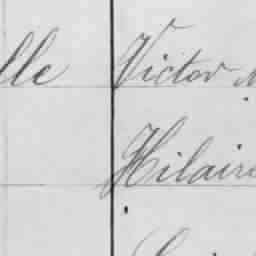 lle Victor
Hilaire